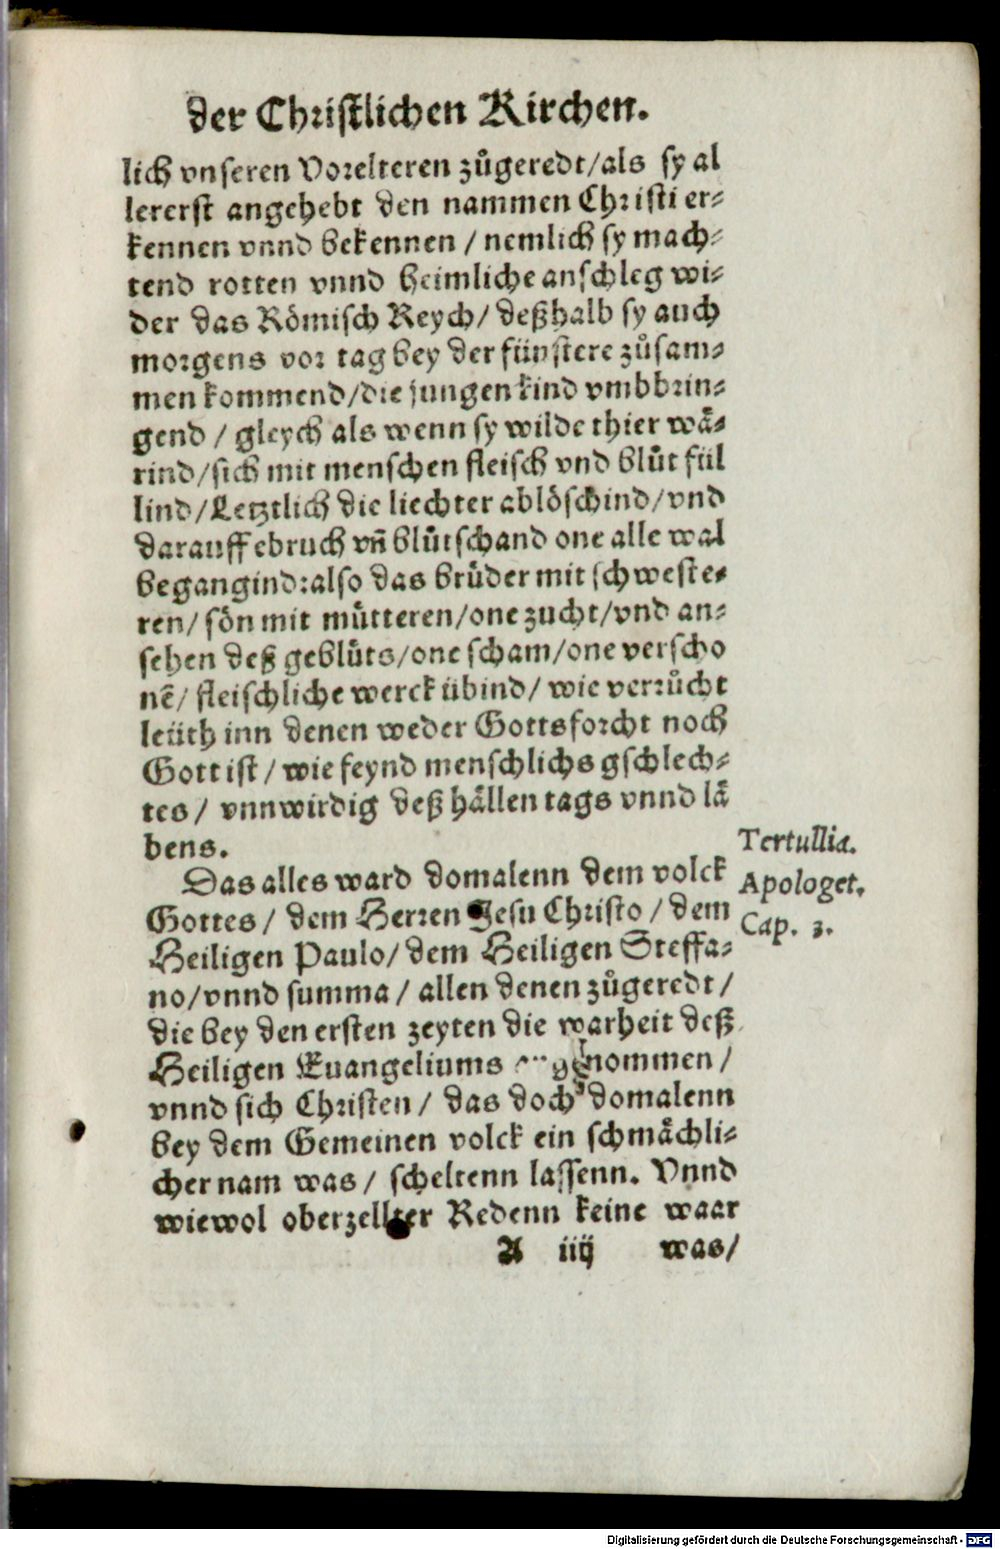 der Christlichen Kirchen.
lich vnseren Vorelteren zůgeredt/als sy al
lererst angehebt den nammen Christi er-
kennen vnnd bekennen / nemlich sy mach-
tend rotten vnnd heimliche anschleg wi-
der das Römisch Reych/ deßhalb sy auch
morgens vor tag bey der fünstere zůsam-
men kommend/die jungen kind vmbbrin-
gend / gleych als wenn sy wilde thier wä-
rind/sich mit menschen fleisch vnd blůt fül
lind/Letztlich die liechter ablöschind/vnd
darauff ebruch vñ blůtschand one alle wal
begangind:also das brůder mit schweste-
ren/ sön mit můtteren/one zucht/vnd an-
sehen deß geblůts/one scham/one verscho
nē/ fleischliche werck übind/ wie verrůcht
leüth inn denen weder Gottsforcht noch
Gott ist / wie feynd menschlichs gschlech-
tes / vnnwirdig deß hällen tags vnnd lä
bens.
Das alles ward domalenn dem volck
Gottes/ dem Herren Jesu Christo / dem
Heiligen Paulo/ dem Heiligen Steffa-
no/vnnd summa / allen denen zůgeredt /
die bey den ersten zeyten die warheit deß
Heiligen Euangeliums angenommen /
vnnd sich Christen / das doch domalenn
bey dem Gemeinen volck ein schmächli-
cher nam was / scheltenn lassenn. Vnnd
wiewol oberzellter Redenn keine waar
A iiij was/
Tertullia.
Apologet.
Cap. 3.
Digitalisierung gefördert durch die Deutsche Forschungsgemeinschaft - DFG